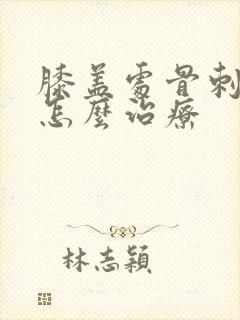 膝盖處骨刺
怎麼治療
林志穎